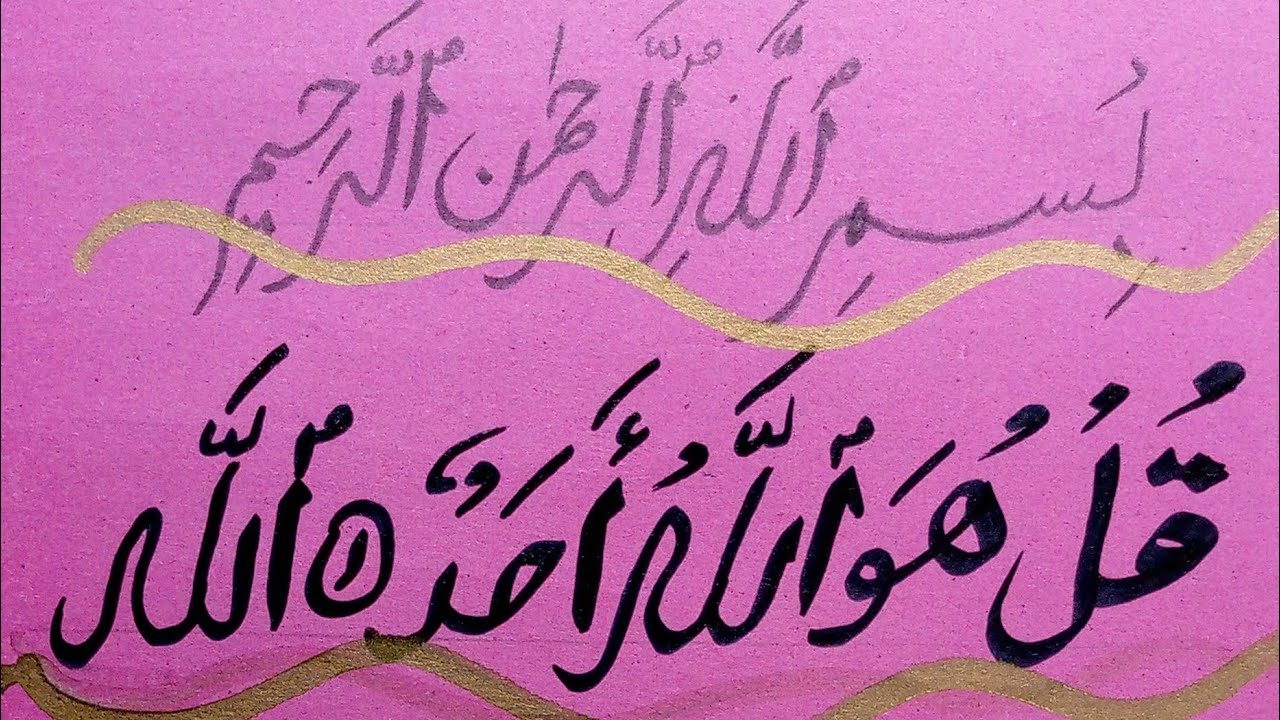 بِسْمِ ٱللَّهِ ٱلرَّحْمَٰنِ ٱلرَّحِيمِ
قُلْ هُوَ ٱللَّهُ أَحَدٌ ۝١ ٱللَّه